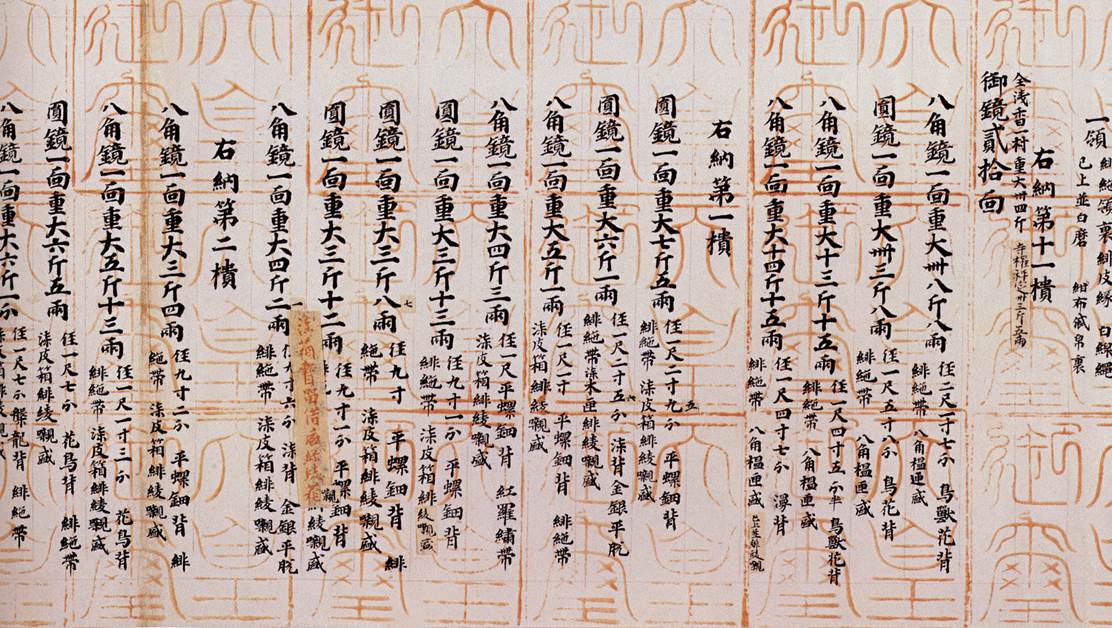 一領
已上並白磨 紺布袋帛裏
右納第十一樻
全浅香一村重大卅四斤
御鏡貳拾面
八角鏡一面重大卌八斤八兩
径二尺一寸七分 鳥獸花背
緋絁帶 八角榲匣盛
圓鏡一面重大卌三斤八兩
径一尺五寸八分 鳥花背
緋絁帶 八角榲匣盛
八角鏡一面重大十三斤十五兩
径一尺四寸五分半 鳥獸花背
緋絁帶 八角榲匣盛
八角鏡一面重大十四斤十五兩
径一尺四寸七分 漫背
緋絁帶 八角榲匣盛
右納第一樻
圓鏡一面重大七斤五兩
径一尺二寸九分 平螺鈿背
緋絁帶 漆皮箱緋綾嚫盛
圓鏡一面重大六斤一兩
径一尺一寸五分 漆背金銀平脱
緋絁帶漆木匣緋綾嚫盛
八角鏡一面重大五斤一兩
径一尺二寸 平螺鈿背 緋絁帶
漆皮箱緋綾嚫盛
八角鏡一面重大四斤三兩
径一尺平螺鈿背 紅羅繡帶
漆皮箱緋綾嚫盛
圓鏡一面重大三斤十三兩
径九寸一分 平螺鈿背
緋絁帶 漆皮箱緋綾嚫盛
圓鏡一面重大三斤八兩
七
径九寸 平螺鈿背 緋
絁帶 漆皮箱緋綾嚫盛
圓鏡一面重大三斤十二兩
径九寸一分 平螺鈿背
綾嚫盛
八角鏡一面重大四斤二兩
一
九寸六分 漆背 金銀平脱
緋絁帶 漆皮箱緋綾嚫盛
右納第二樻
八角鏡一面重大三斤四兩
径九寸二分 平螺鈿背 緋
絁帶 漆皮箱緋綾嚫盛
八角鏡一面重大五斤十三兩
径一尺一寸三分 花鳥背
緋絁帶 漆皮箱緋綾嚫盛
圓鏡一面重大六斤五兩
径一尺七分 花鳥背 緋絁帶
漆皮箱緋綾嚫盛
八角鏡一面重大六斤一分
径一尺七分槃龍背 緋絁帶